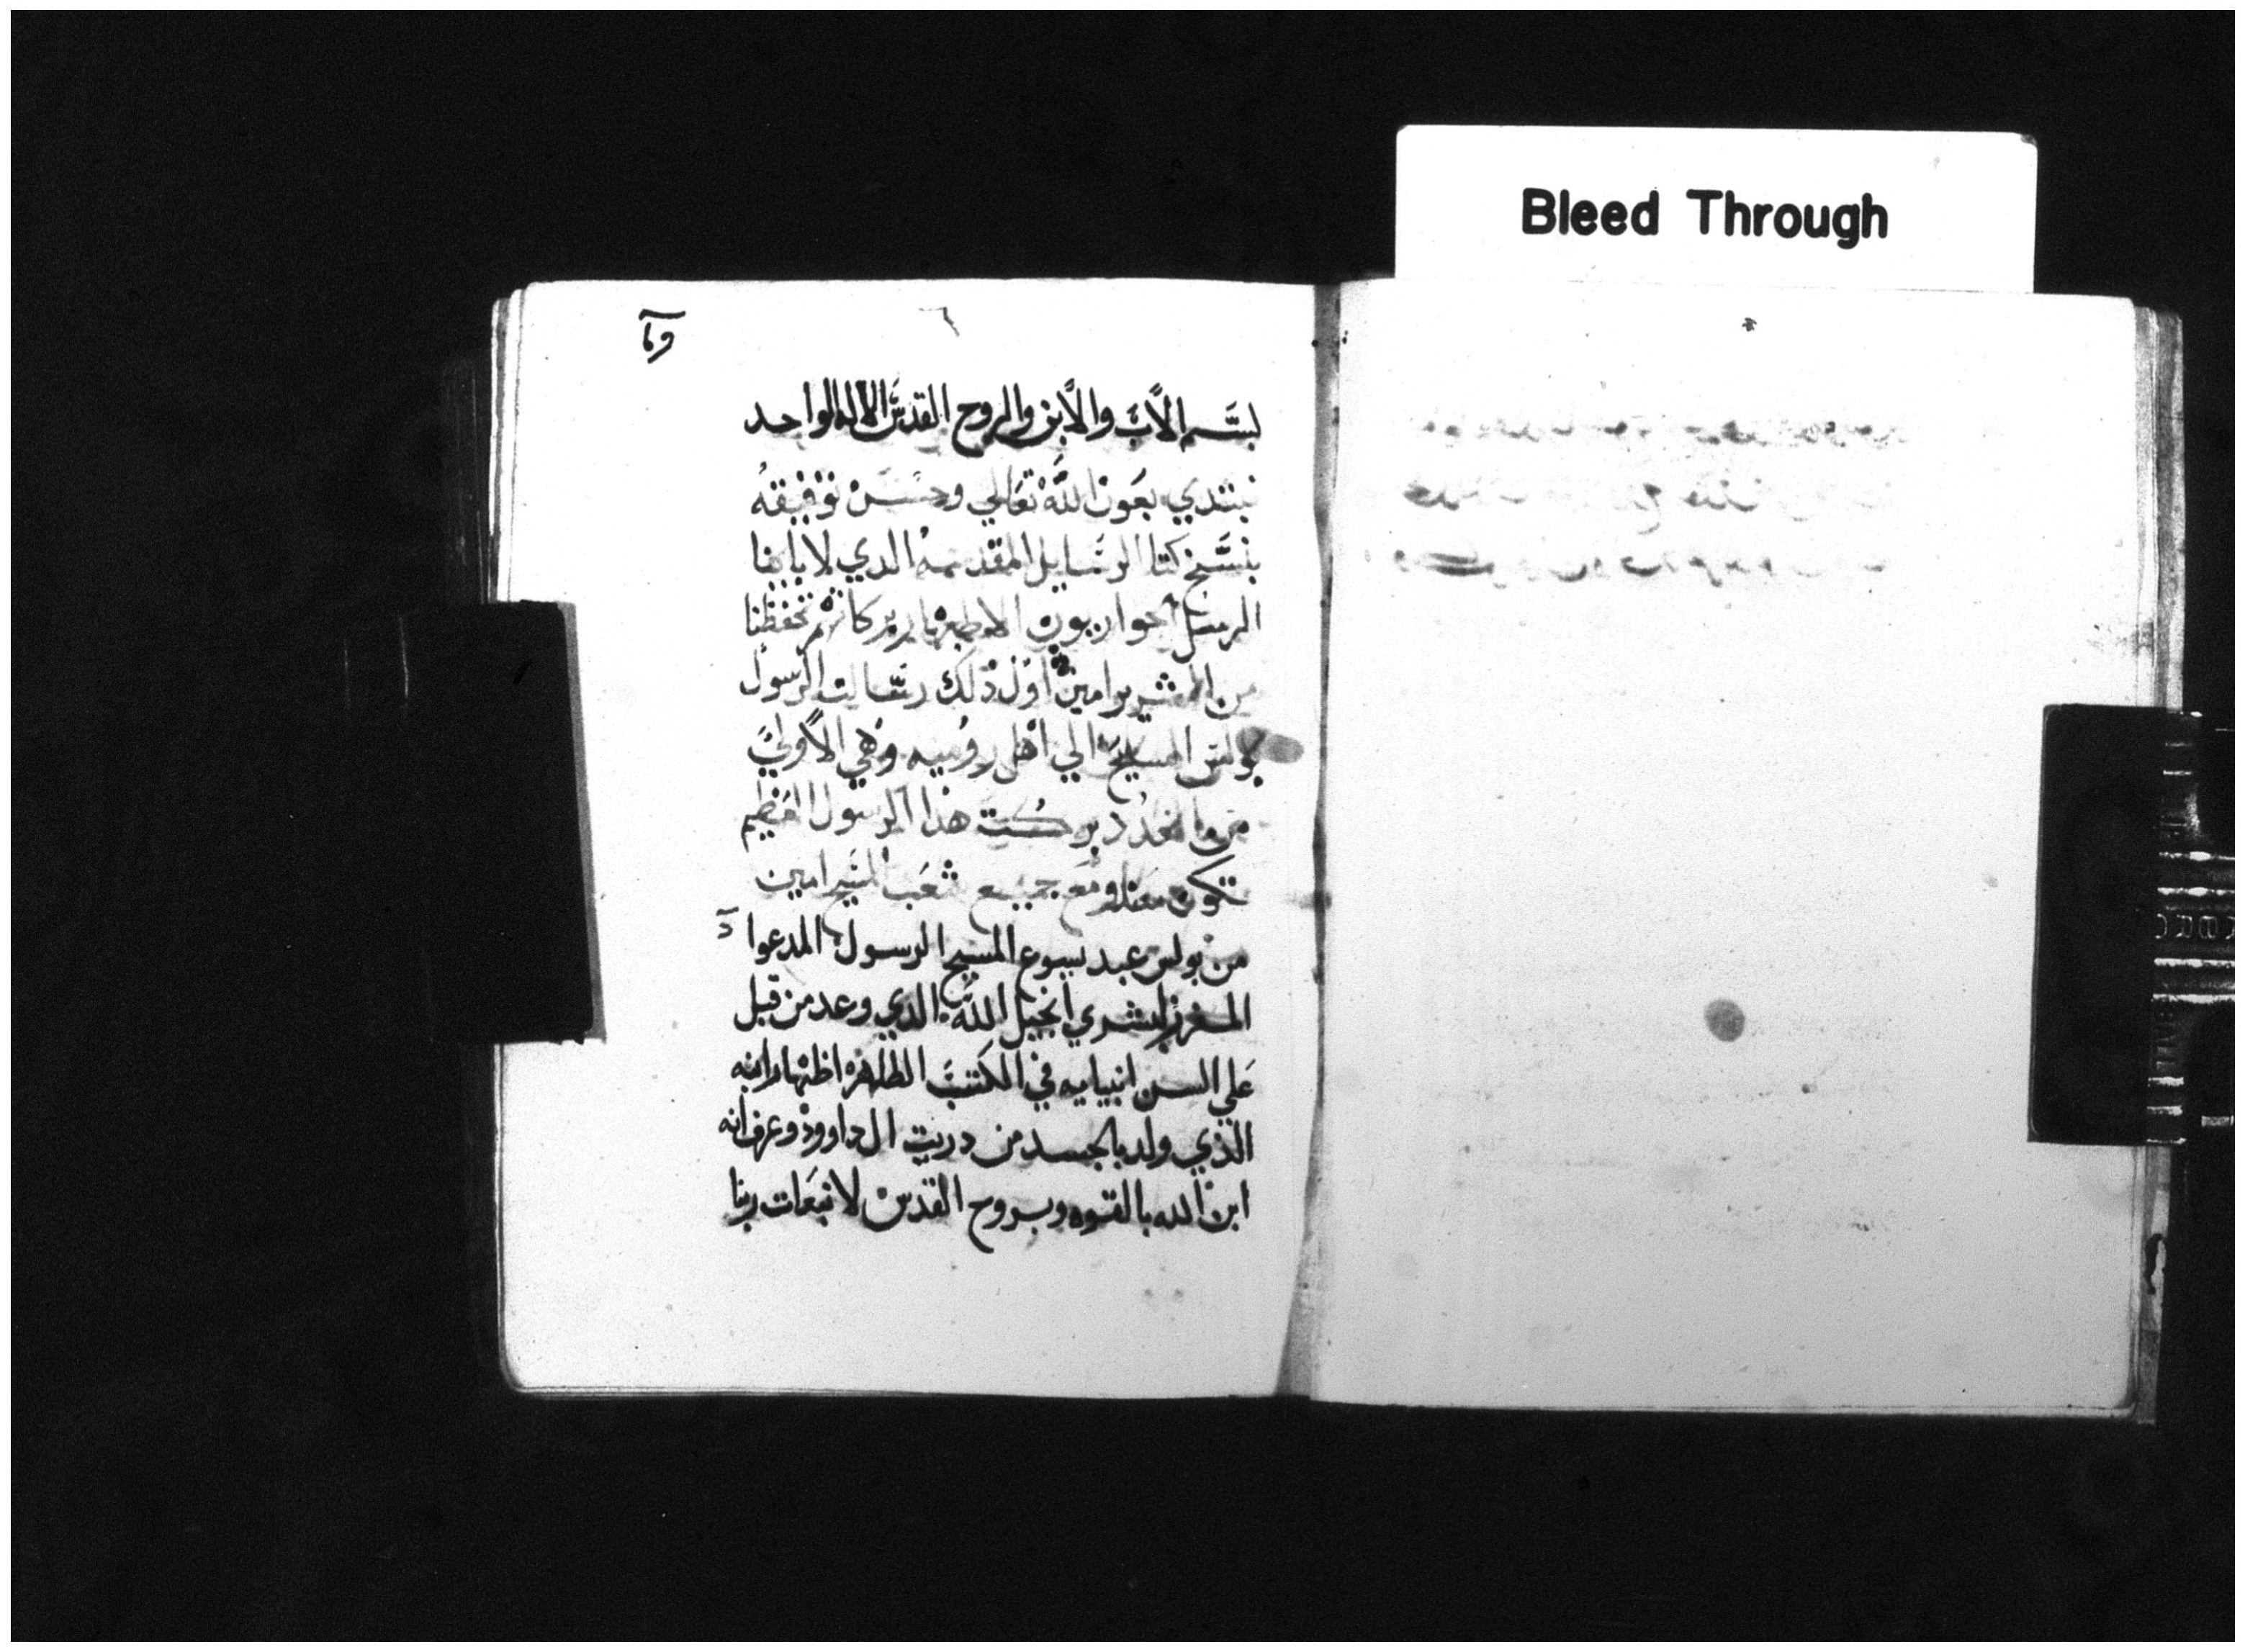 Bleed Through
بسم الاب والابن والروح القدس الاله الواحد
نبتدي بعون الله تعالي وحسن توفيقه
بنسخ كتا الرسايل المقدسه الذي لابابنا
الرسل الحواريون الاطهار بركاتهم تحفظنا
من امين اول ذلك رسالت الرسول
بولس المسيح الي اهل روميه وهي الاولي
من هذا الرسول العظيم
تكون معنا ومع جميع شعب المسيح امين
من بولس عبد يسوع المسيح الرسول المدعوا
المفرز لبشري انجيل الله الذي وعد من قبل
علي السن انبيايه في الكتب الطاهره اظهار ابنه
الذي ولد بالجسد من دريت ال داوود وعرف انه
ابن الله بالقوه وبروح القدس لانبعات ربنا